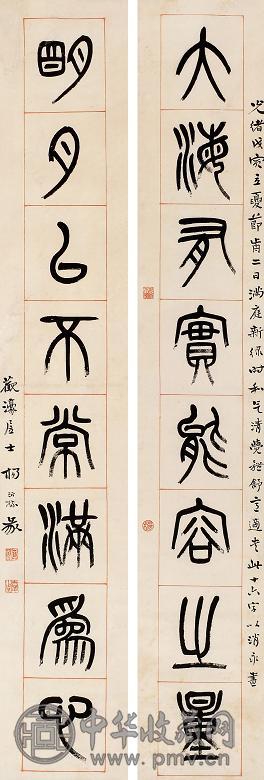 光緒戊寅立夏節前二日滿庭新綠時和氣清意適書此十六字以消永晝
大海有實能容之量
明月以不常滿為心
觀濠居士楊沂孫篆
中华收藏网
www.pmv.com.cn